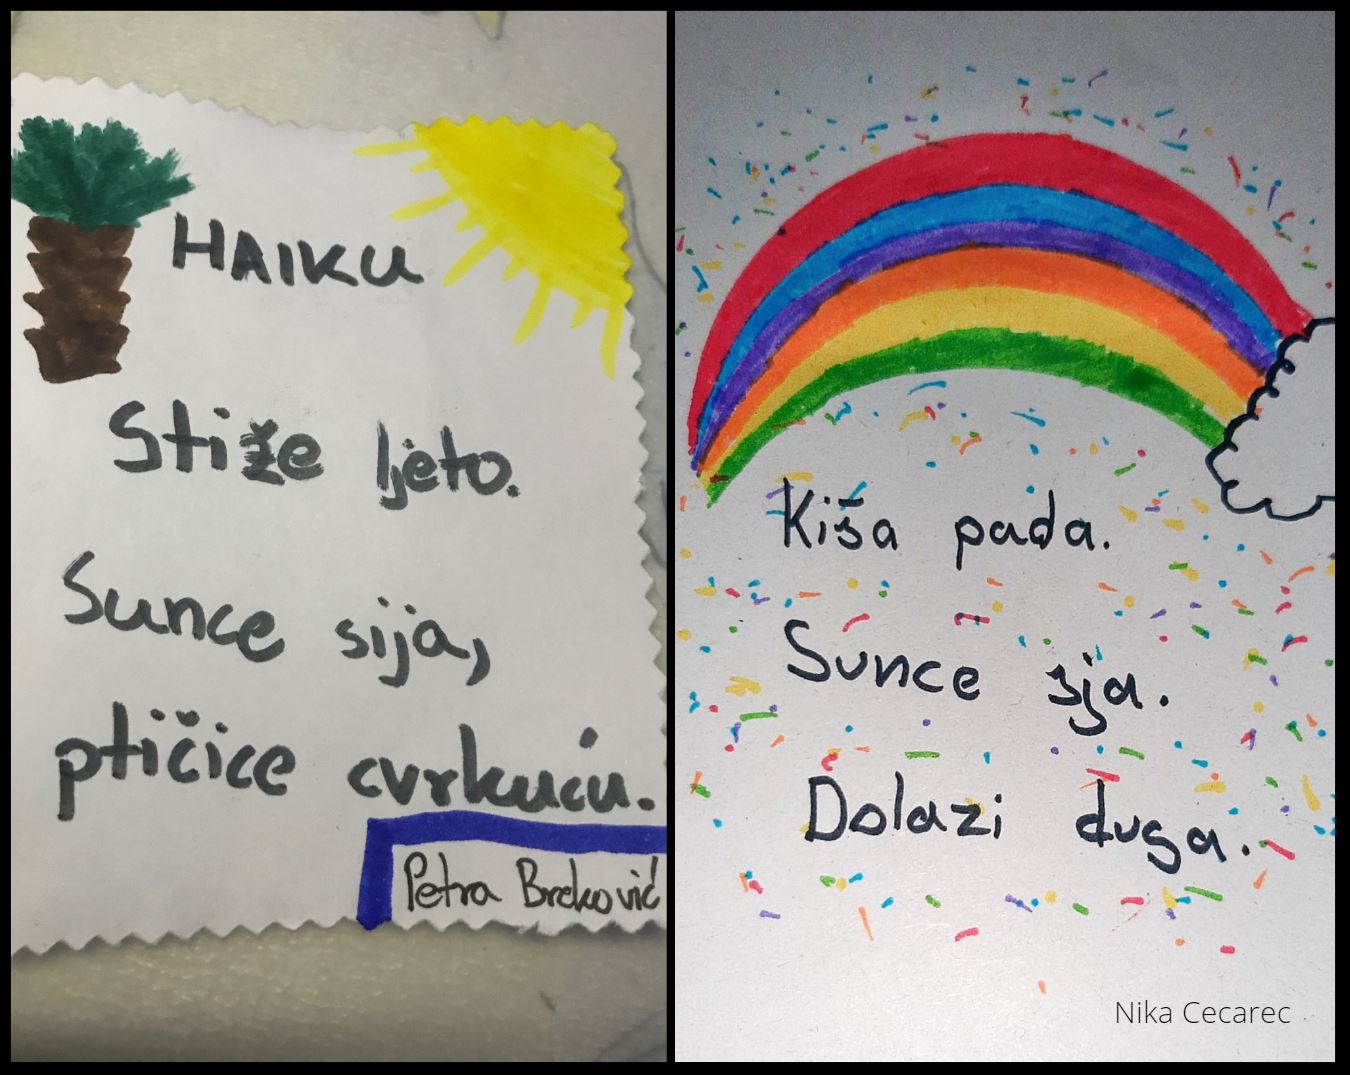 HAIKU
Stiže ljeto.
Sunce sija,
ptičice cvrkuću.
Petra Breković
Kiša pada.
Sunce sja.
Dolazi duga.
Nika Cecarec